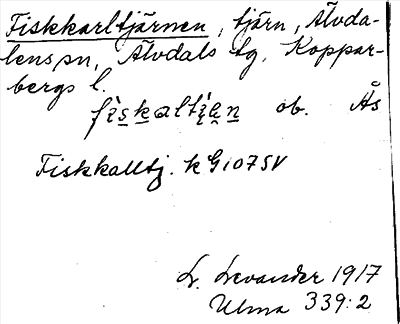 Fiskkarltjärnen, tjärn, Älvda-
lens sn, Älvdals tg, Koppar-
bergs l.
fiskaltien ob. Ås
Fiskkalltj. k G107SV
L. Levander 1917
Ulma 339:2